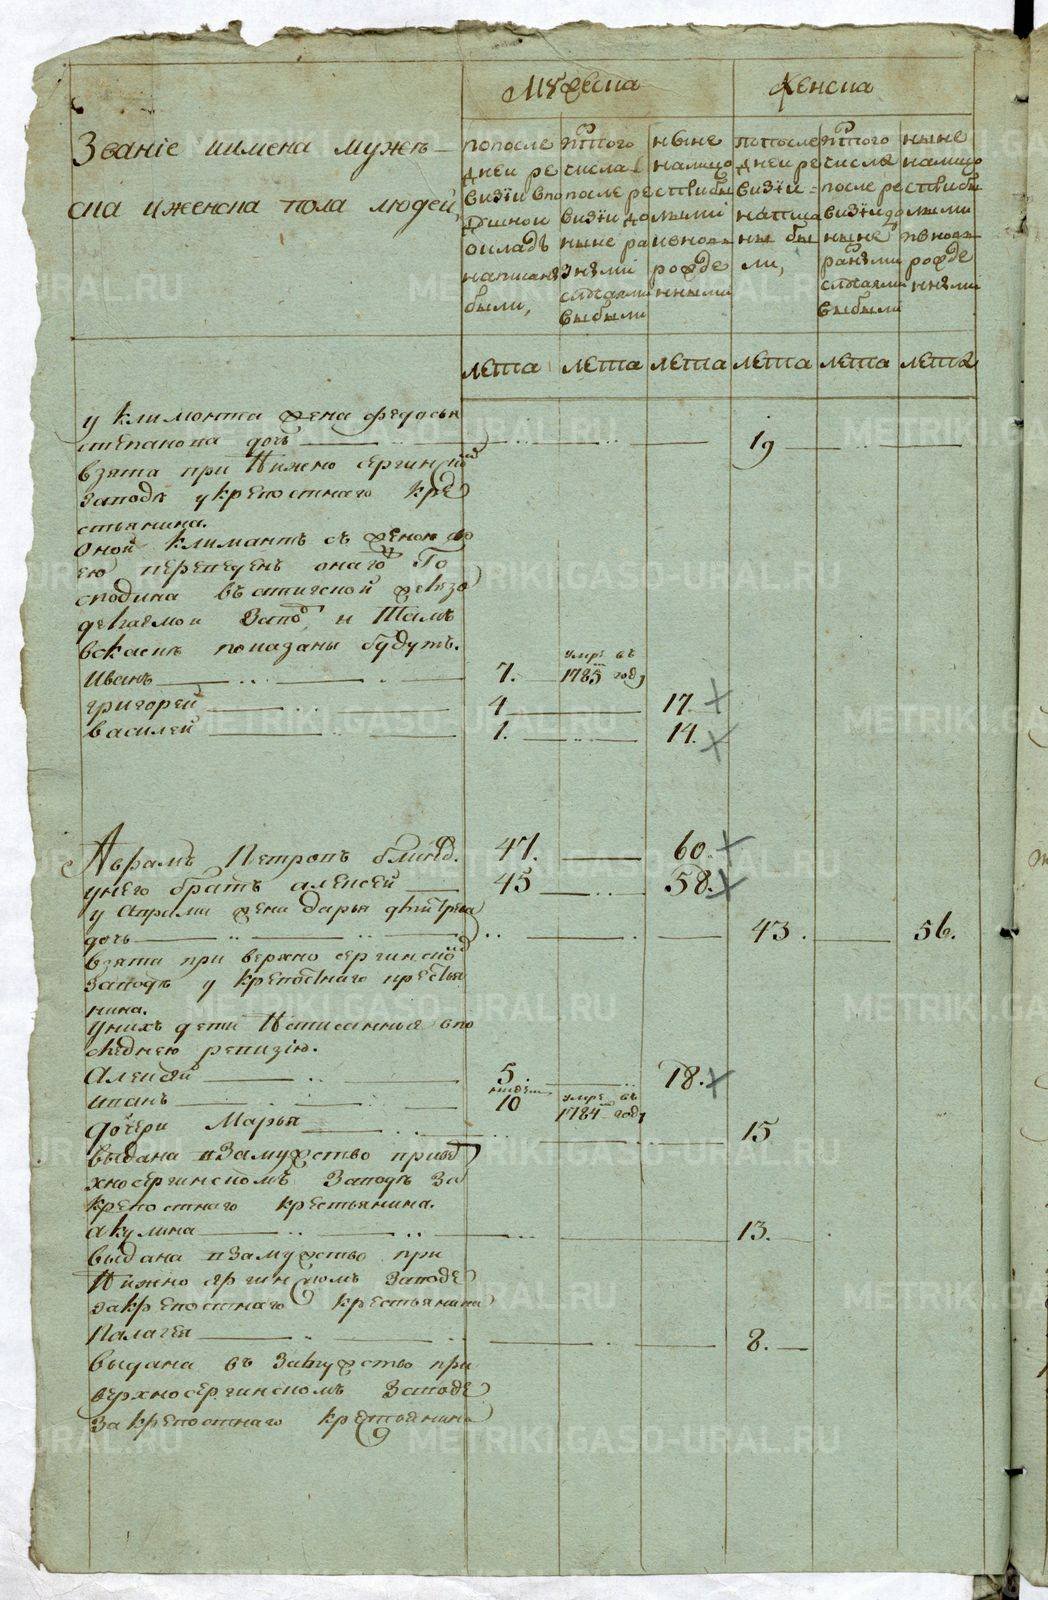 Мужеска
Женска
Званіе иимена мужеска
ска иженска пола людей,
попосле
дней ре
визіи впо
душной
окладъ
написаны
были,
изтого
числа
после ре
визіи до
ныне ра
зными
случаями
выбыли
ныне
налицо
состприбы
лыми
ивновь
рожде
нными
попосле
дней ре
визіи
написа
ны бы
ли,
изтого
числа
после ре
визіи до
ныне
разными
случаями
выбыли
ныне
налицо
состприбы
лыми
ивновь
рожде
нными
лета лета лета лета лета лета
у климонта жена федосья
степанова дочь 19
взята при Нижно сергинскомъ
заводе укрепостнаго кре
стьянина.
оной климантъ съ женою сво
ею переведенъ онагожъ Го
сподина въ атигской железо
делаемой завод и тамъ
вскаске показаны будутъ.
Иванъ 7. умре въ 1785 году
григорей 4 17.
василей 1. 14.
Аврамъ Петровъ блинов. 47. 60.
унего братъ алексей 45 58.
у аврама жена дарья дмитрева
дочь 43. 56.
взята при верхно сергинском
заводе у крепостнаго крестья
нина.
униxъ дети Написанныя впо
следнею ревизію.
Алексей 5. 18.
иванъ 10 умре въ 1784 году
дочери Марья 15
выдана взамужство приверх
хносергинскомъ Заводе за
крепостнаго крестьянина.
акулина 13.
выдана взамужство при
Нижно сергинскомъ заводе
закрепостнаго крестьянина
Палагея 8.
выдана въ замужство при
верхносергинскомъ заводе
закрепостнаго крестьянина
METRIKI.GASO-URAL.RU